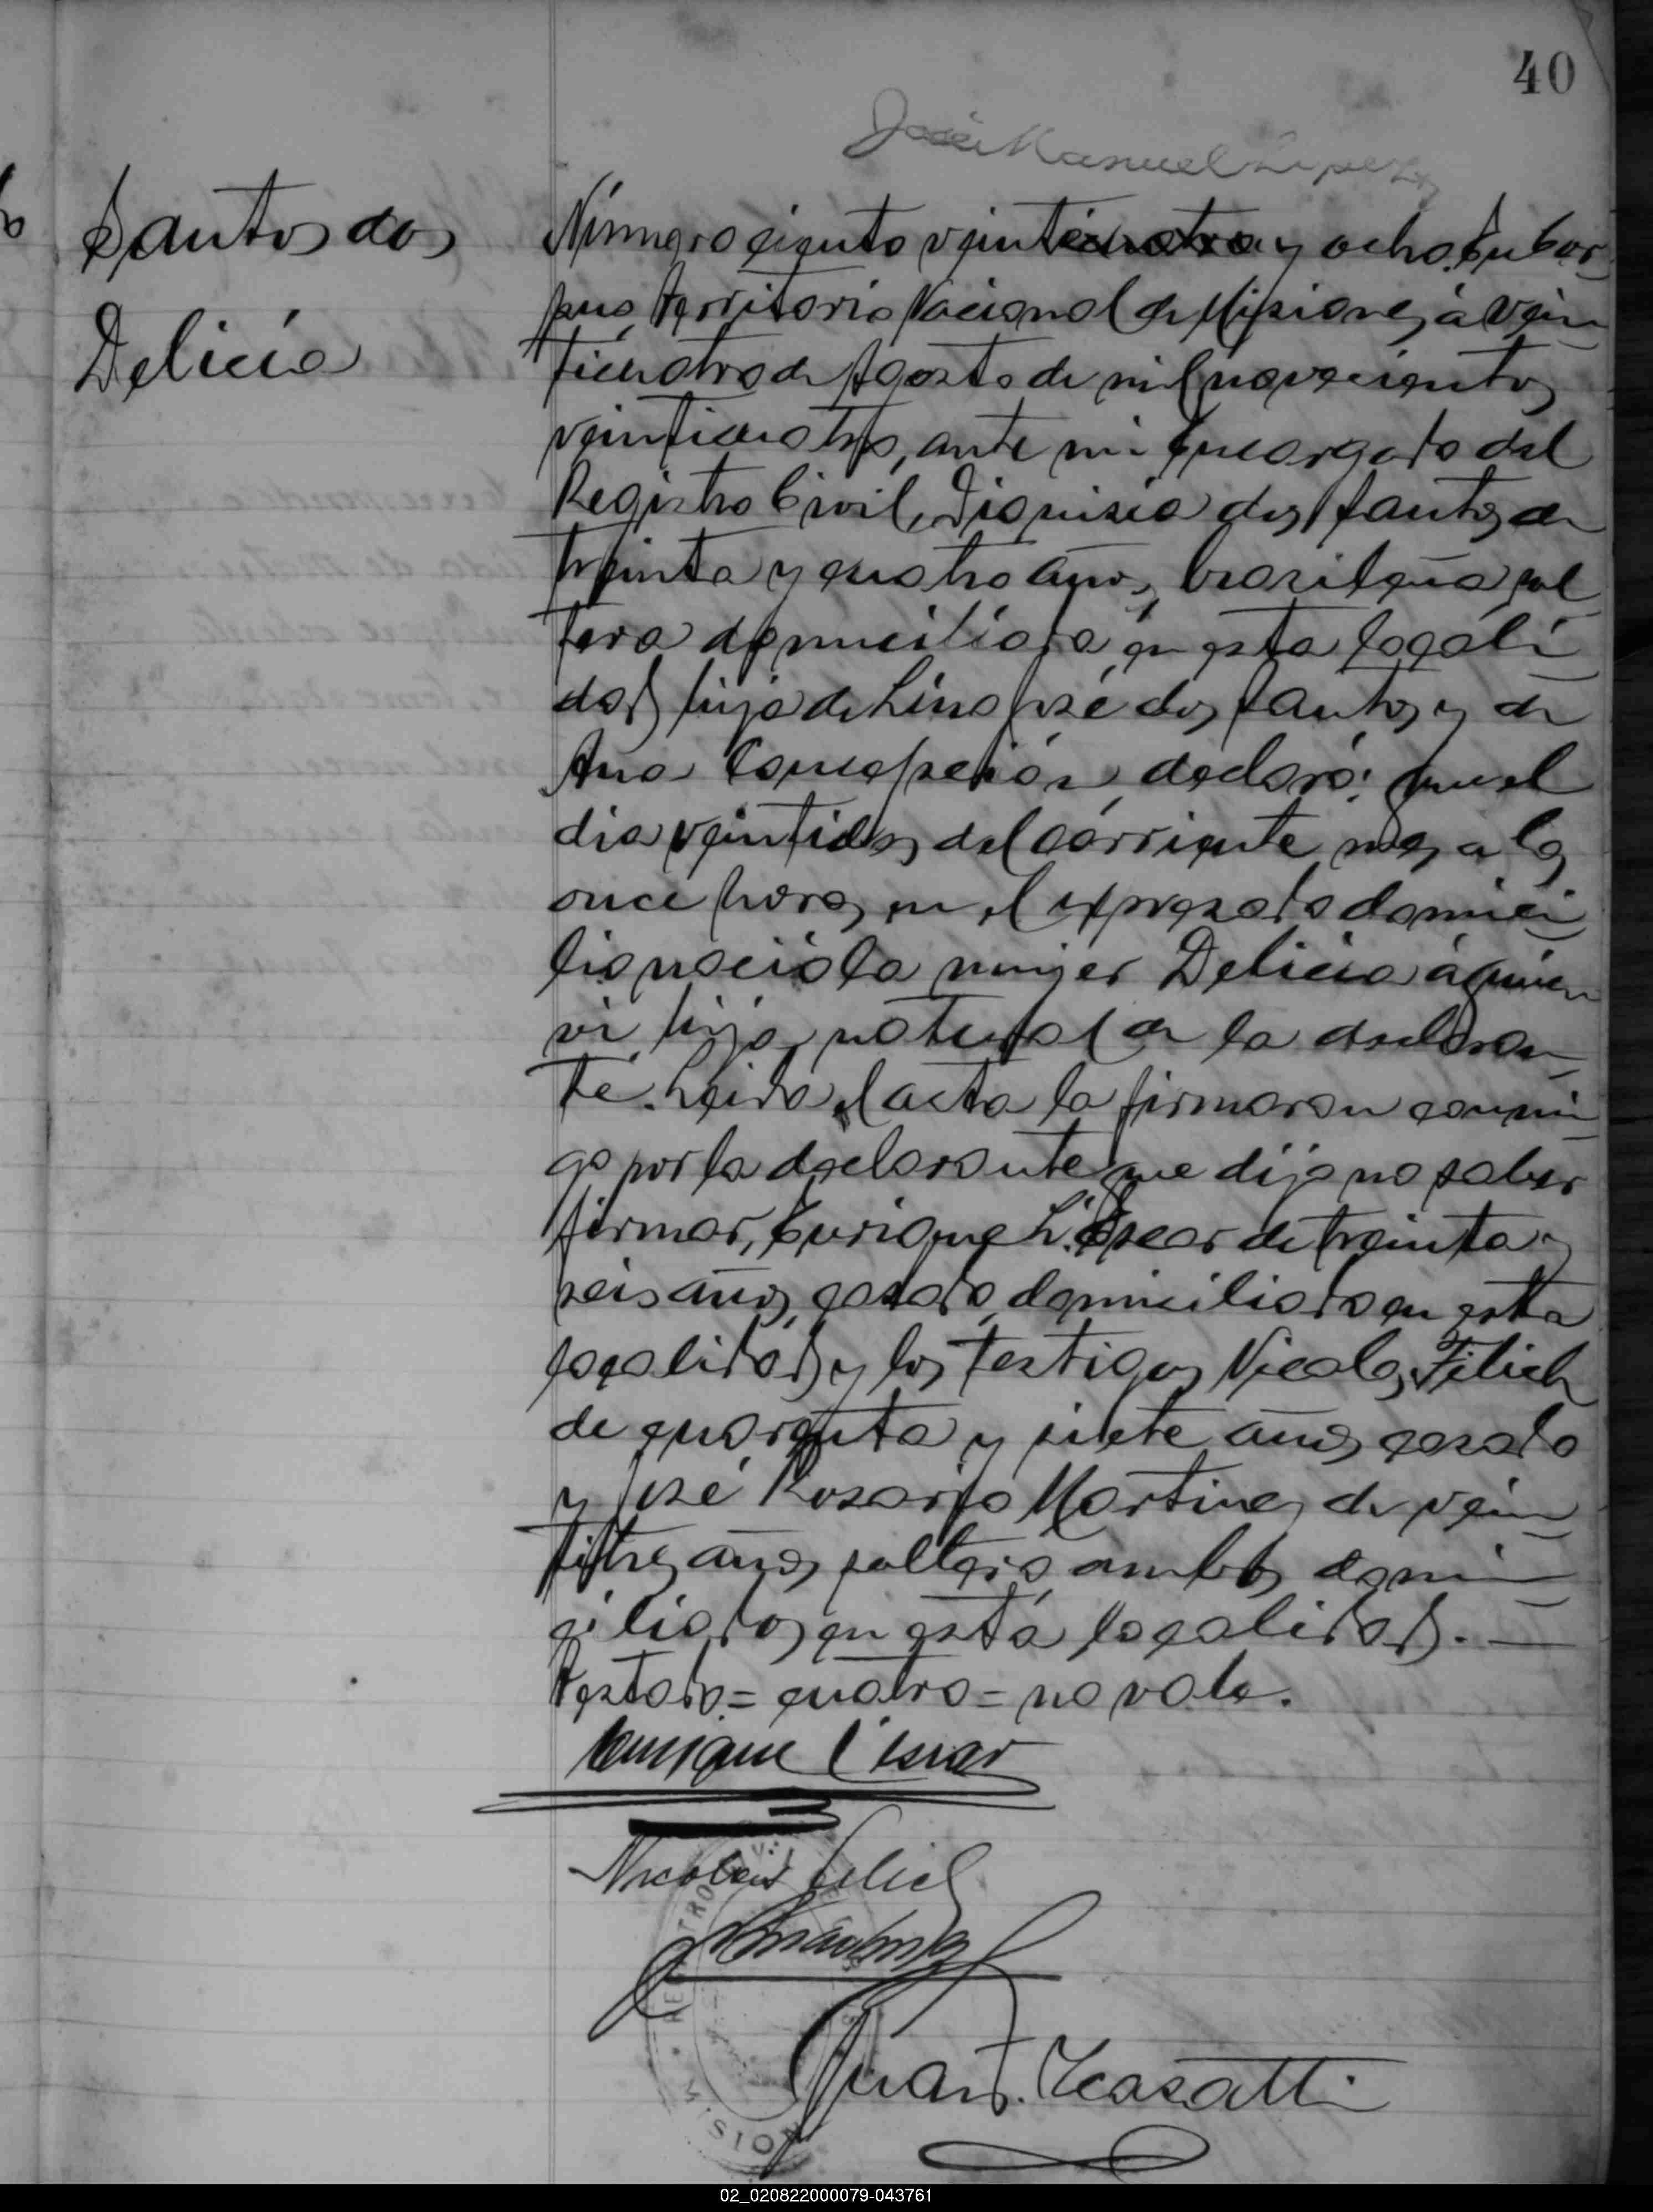 40
José Manuel Lopez
Santos dos
Delicia
Número ciento veinticuatro y ocho. En Cor
pus, Territorio Nacional de Misiones, á vein
ticuatro de Agosto de mil novecientos
veinticuatro, ante mi Encargado del
Registro Civil, Dionisia dos Santos de
treinta y cuatro años, brasileña, sol
tera domiciliada en esta locali
dad, hija de Lino José dos Santos y de
Ana Concepción, declaró: que el
dia veintidos del corriente mes, a las
once horas, en el expresado domici
lio nació la mujer Delicia á quien
vi, hija natural de la declaran
te. Leida el acta la firmaron conmi
go por la declarante que dijo no saber
firmar, Enrique L. Escar de treinta y
seis años, casado, domiciliado en esta
localidad y los testigos Nicolas Filich
de cuarenta y siete años, casado
y José Rosario Martines, de vein
titres años, soltero, ambos domi
ciliados en está localidad. —
Testado = cuatro = no vale.
Enrique Escar
Nicolas Filich
Juan T. Casatti
REGISTRO CIVIL
MISIONES
02_020822000079-043761